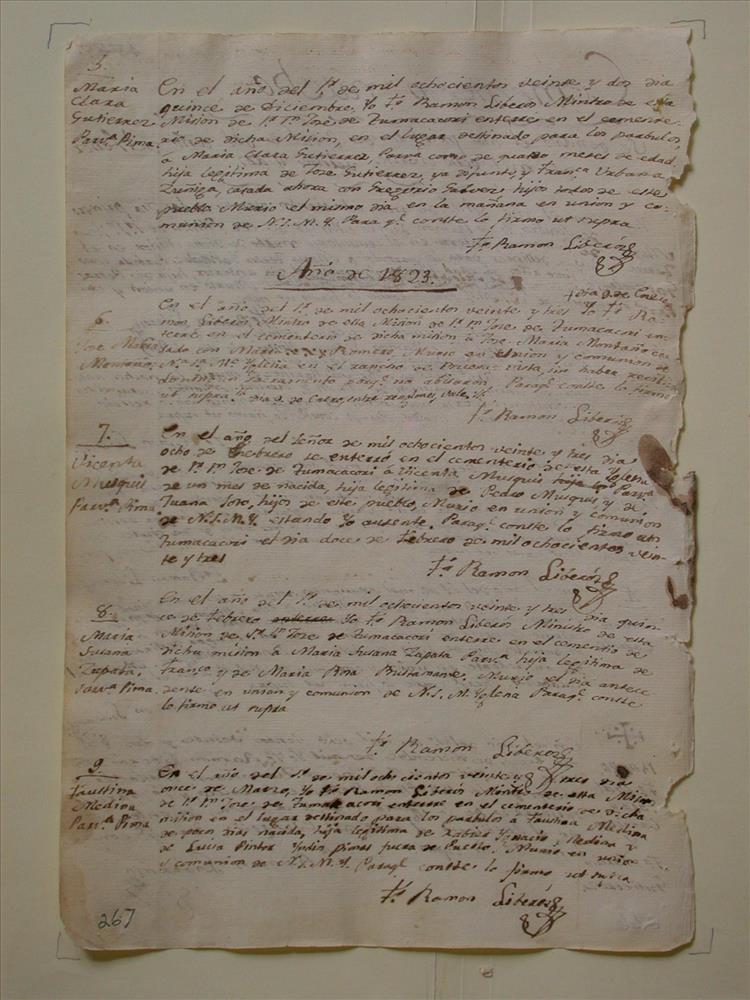 5.
Maria
Clara
Gutierrez
Parv.ª Pima.
En el año del S.r de mil ochocientos veinte y dos dia
quince de Diciembre, Yo Fr. Ramon Liberòs Mintro de esta
Mision de S.n S.n Jose de Tumacacori enterre en el cemente-
rio de dicha Mision, en el lugar destinado para los parbulos,
à Maria Clara Gutierrez, Parv.a como de quatro meses de edad,
hija legitima de Jose Gutierrez, ya difunto, y Fran.ca Urbana
Zuñiga, casada ahora con Gregorio hijos todos de este
pueblo. Murio el mismo dia en la mañana en union y co-
munion de N.S.M.Y. Para q.e conste lo firmo ut supra.
Fr. Ramon Liberòs
Año de 1823.
+ dia 2. de Enero
6.
Jose Maria
Montaño.
En el año del S.r de mil ochocientos veinte y tres Yo Fr. Ra-
mon Liberòs Mintro de esta Mision de S.n S.n Jose de Tumacacori en-
terre en el cementerio de dicha mision à Jose Maria Montaño ca-
sado con Maria Romero. Murio en union y comunion de
N.a S.a M.e Yglesia en el rancho de Buena-vista, sin haber recibido
Sacramento porq.e no abisaron. Paraq.e conste lo firmo
ut supra. dia 2. de Enero, entre renglones, vale.
Fr. Ramon Liberòs
7.
Vicenta
Musquis
Parv.a Pima
En el año del Señor de mil ochocientos veinte y tres dia
ocho de Febrero se enterrò en el cementerio de esta Yglesia
de S.n S.n Jose de Tumacacori à Vicenta Musquis Parv.a
de un mes de nacida, hija legitima de Pedro Musquis y de
Juana Jose, hijos de este pueblo, Murio en union y comunion
de N.S.M.Y. estando Yo ausente. Paraq.e conste lo firmo en
Tumacacori el dia doce de Febrero de mil ochocientos vein-
te y tres
Fr. Ramon Liberòs
8.
Maria
Susana
Zapata.
Parv.a Pima.
En el año del S.r de mil ochocientos veinte y tres dia quin-
ce de Febrero enterre Yo Fr. Ramon Liberòs Ministro de esta
Mision de S.n S.n Jose de Tumacacori enterre en el cementerio de
dicha mision à Maria Susana Zapata Parv.a hija legitima de
Fran.co y de Maria Rosa Bustamante. Murio el dia antece
dente en union y comunion de N.S.M. Yglesia Paraq.e conste
lo firmo ut supra
Fr. Ramon Liberòs
9.
Faustina
Medina
Parv.a Pima
En el año del S.r de mil ochocientos veinte y tres dia
once de Marzo, Yo Fr. Ramon Liberòs Mintro de esta Mision
de S.n S.n Jose de Tumacacori enterre en el cementerio de dicha
mision en el lugar destinado para los parbulos à Faustina Medina
de pocos dias nacida, hija legitima de Xabier Ygnacio Medina y
de Lucia Pintor Yndios Pimas fuera de Pueblo. Murio en union
y comunion de N.S.M.Y. Paraq.e conste lo firmo ut supra
Fr. Ramon Liberòs
267